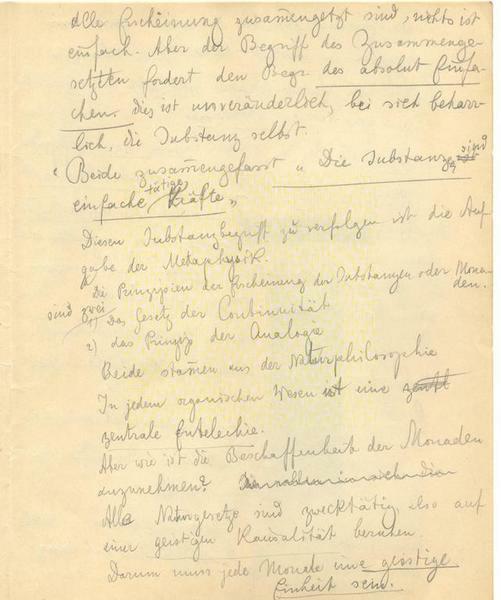 alle Erscheinung zusam̄engetzt sind, nichts ist
einfach. Aber der Begriff des Zusammenge-
setzten fordert den Begr. des absolut Einfa-
chen. dies ist unveränderlich, bei sich beharr-
lich, die Substanz selbst.
"Beide zusam̄engefasst „Die Substanzen sind
tätige
einfache Kräfte"
Diesen Substanzbegriff zu verfolgen ist die Auf-
gabe der Metaphysik.
Die Prinzipien der Erscheinung der Substanzen oder Mona-
den.
sind zwei
1) Das Gesetz der Continuität
2) das Prinzip der Analogie
Beide stam̄en aus der Naturphilosophie
In jedem organischen Wesen ist eine zentl
zentrale Entelechie.
Aber wie ist die Beschaffenheit der Monaden
anzunehmen?
Alle Naturgesetze sind zwecktätig, also auf
einer geistigen Kausalität beruhen.
Darum muss jede Monade eine geistige
Einheit sein.